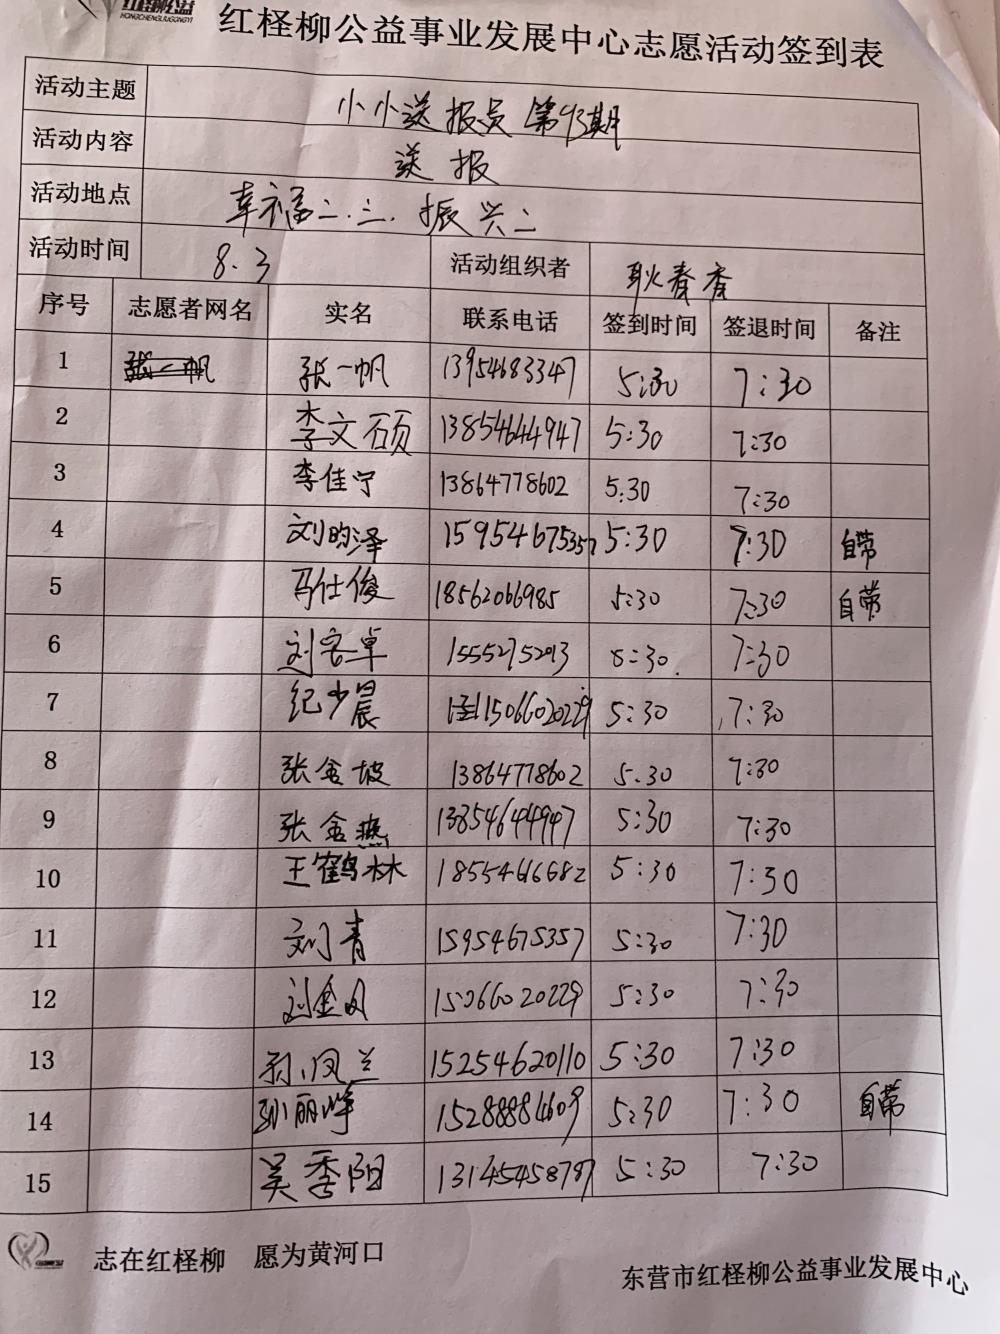 红柽柳公益
HONGCHENGLIUGONGYI
红柽柳公益事业发展中心志愿活动签到表
活动主题 小小送报员 第93期
活动内容 送报
活动地点 幸福二.三.振兴二
活动时间 8.3 活动组织者 耿春香
序号 志愿者网名 实名 联系电话 签到时间 签退时间 备注
1 张一帆 张一帆 13954683347 5:30 7:30
2 李文硕 13854644947 5:30 7:30
3 李佳宁 13864778602 5:30 7:30
4 刘昀泽 15954675357 5:30 7:30 自带
5 马仕俊 18562066985 5:30 7:30 自带
6 刘容卓 15552752013 5:30. 7:30
7 纪少晨 15066020229 5:30 7:30
8 张金坡 13864778602 5:30 7:30
9 张金燕 13854644947 5:30 7:30
10 王鹤林 18554616682 5:30 7:30
11 刘青 15954675357 5:30 7:30
12 刘金凤 15066020229 5:30 7:30
13 孙凤兰 15254620110 5:30 7:30
14 孙丽峰 15288884609 5:30 7:30 自带
15 吴季阳 13145458787 5:30 7:30
志在红柽柳 愿为黄河口
东营市红柽柳公益事业发展中心